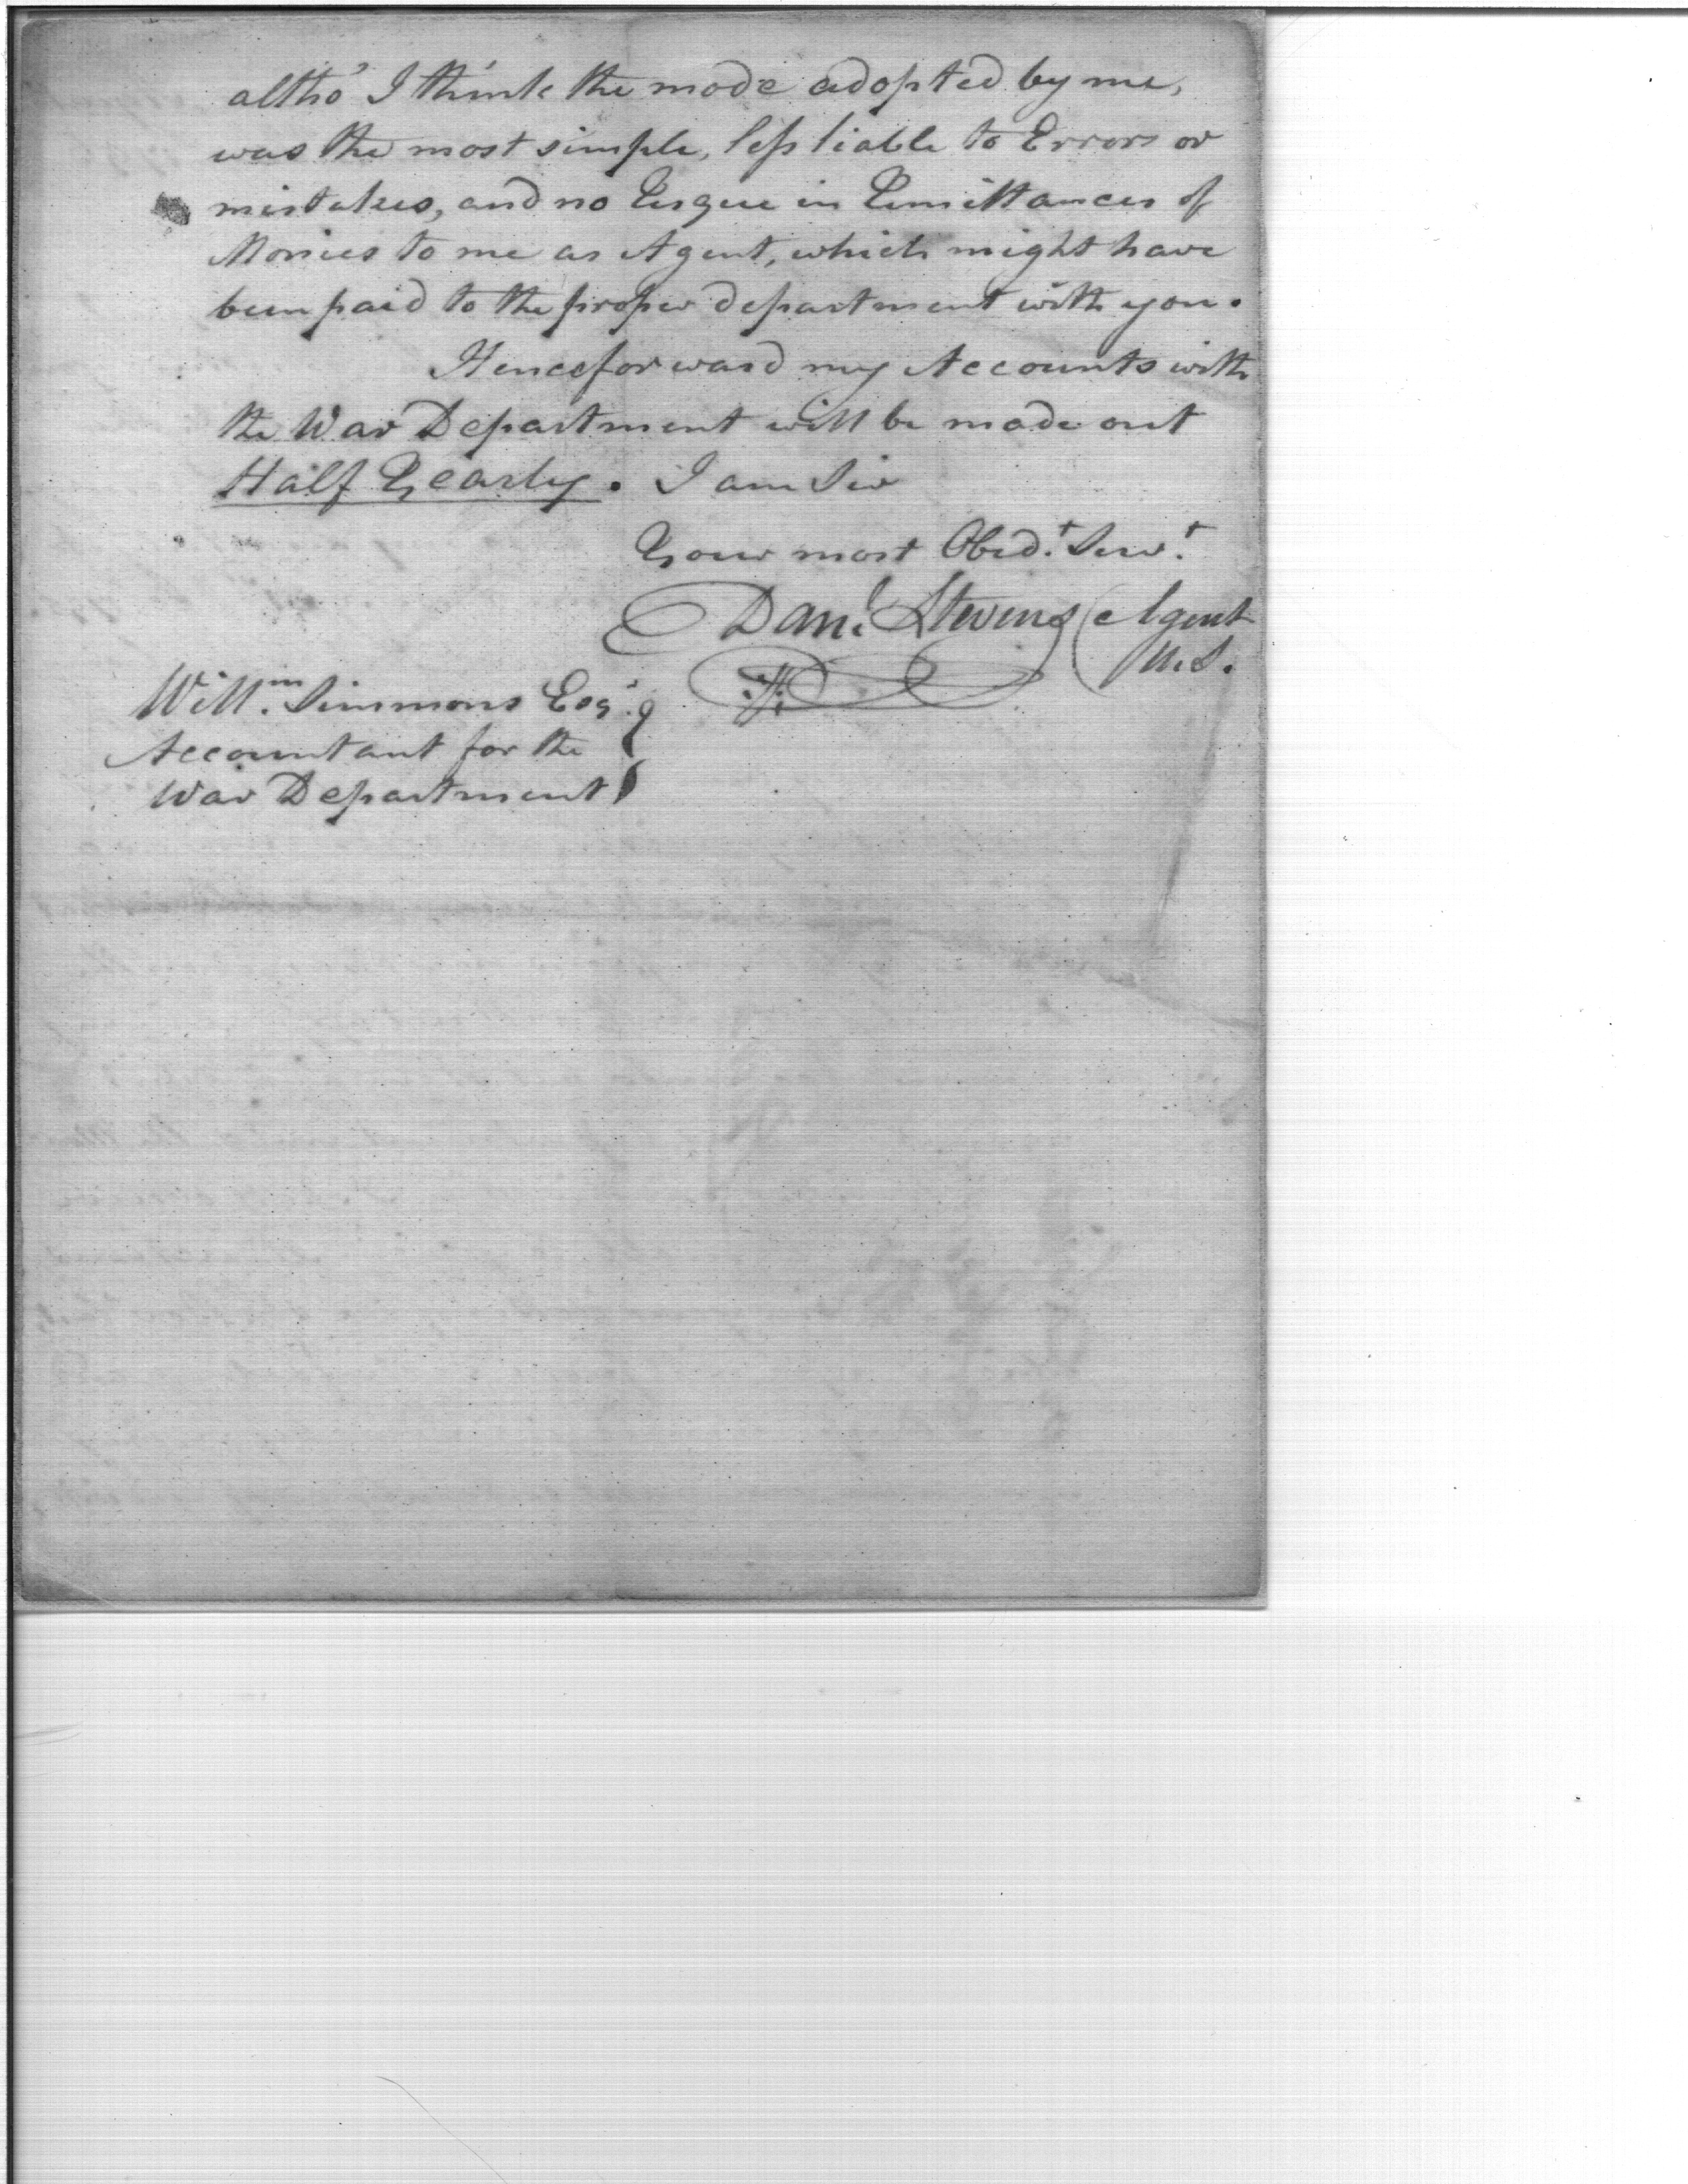 altho' I think the mode adopted by me,
was the most simple, less liable to Errors or
mistakes, and no Risque in Remittances of
Monies to me as Agent, which might have
been paid to the proper department with you.
Henceforward my Accounts with
the War Department will be made out
Half Yearly. I am Sir
Your most Obed.t Serv.t
Dan.l Stevens Agent
U.S.
Will.m Simmons Esq.
Accountant for the
War Department